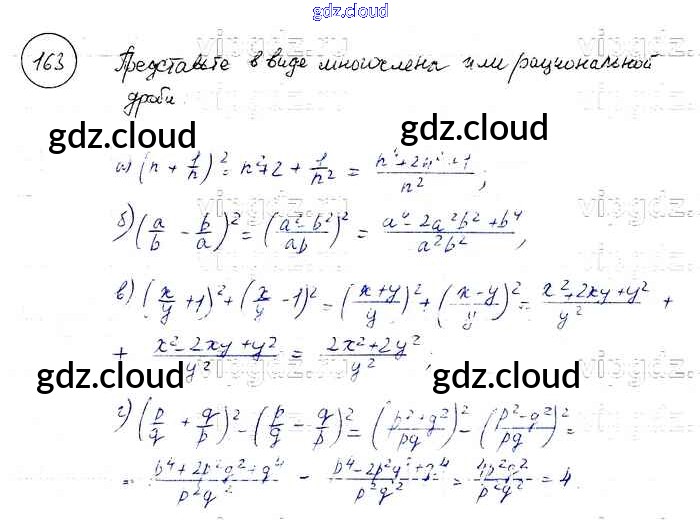 gdz.cloud
163 Представьте в виде многочлена или рациональной
дроби
gdz.cloud
gdz.cloud
а) (n + 1/n)² = n²+2 + 1/n² = (n⁴+2n²+1)/n²;
б) (a/b - b/a)² = ((a²-b²)/ab)² = (a⁴-2a²b²+b⁴)/a²b²,
в) (x/y +1)² + (x/y -1)² = ((x+y)/y)² + ((x-y)/y)² = (x²+2xy+y²)/y² +
+ (x²-2xy+y²)/y² = (2x²+2y²)/y²;
gdz.cloud
gdz.cloud
г) (p/q + q/p)² - (p/q - q/p)² = ((p²+q²)/pq)² - ((p²-q²)/pq)² =
= (p⁴+2p²q²+q⁴)/p²q² - (p⁴-2p²q²+q⁴)/p²q² = 4p²q²/p²q² = 4